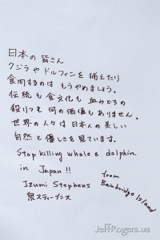 日本の皆さん
クジラやドルフィンを捕えたり
食用するのは もうやめましょう。
伝統も食文化も 血みどろの
殺りくも 何の価値もありません。
世界の人々は 日本人の美しい
自然と優しさを見ています。
Stop killing whale & dolphin
in Japan!!
from
Izumi Stephens
Bainbridge Island
泉スティーブンス
JeffRogers.us